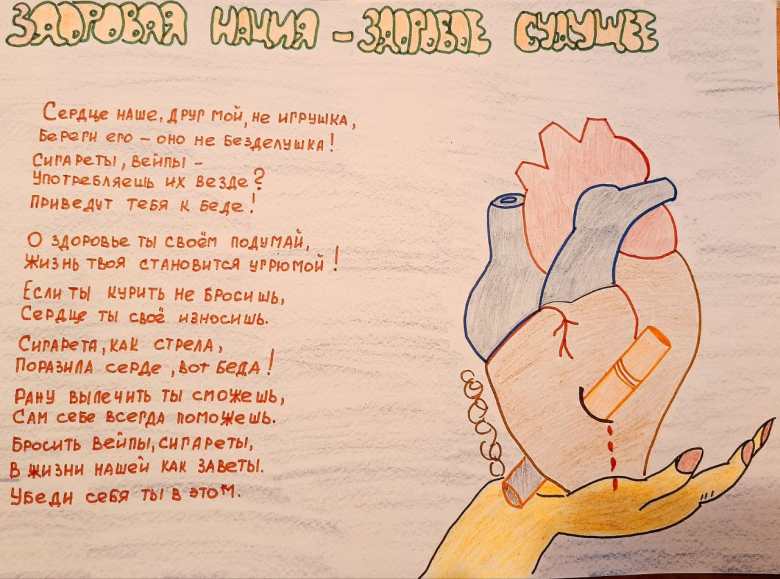 ЗДОРОВАЯ НАЦИЯ - ЗДОРОВОЕ БУДУЩЕЕ
Сердце наше, друг мой, не игрушка,
Береги его - оно не безделушка!
Сигареты, вейпы -
Употребляешь их везде?
Приведут тебя к беде!
О здоровье ты своём подумай,
Жизнь твоя становится угрюмой!
Если ты курить не бросишь,
Сердце ты своё износишь.
Сигарета, как стрела,
Поразила серде, вот беда!
Рану вылечить ты сможешь,
Сам себе всегда поможешь.
Бросить вейпы, сигареты,
В жизни нашей как заветы.
Убеди себя ты в этом.